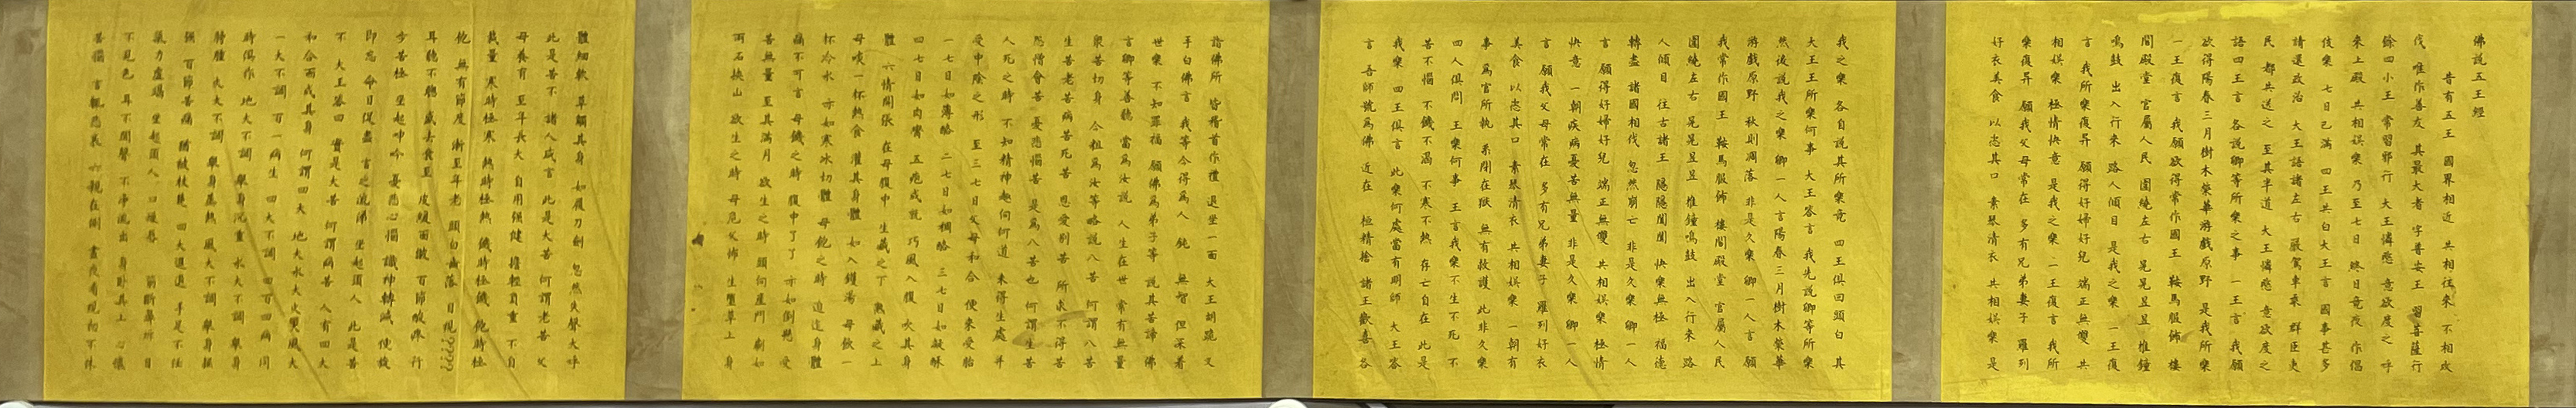 佛說五王經
昔有五王 國界相近 共相往來 不相攻
伐 唯作善友 其最大者 字普安王 習菩薩行
餘四小王 常習邪行 大王憐愍 意欲度之 呼
來上殿 共相娛樂 乃至七日 終日竟夜 作倡
伎樂 七日已滿 四王共白大王言 國事甚多
請還政治 大王語諸左右 嚴駕車乘 群臣吏
民 都共送之 至其半道 大王憐愍 意欲度之
語四王言 各說卿等所樂之事 一王言 我願
欲得陽春三月樹木榮華游戲原野 是我所樂
一王復言 我願欲得常作國王 鞍馬服佈 樓
閣殿堂 官屬人民 圍繞左右 晃晃昱昱 椎鐘
鳴鼓 出入行來 路人傾目 是我之樂 一王復
言 我所樂復昇 願得好婦好兒 端正無雙 共
相娛樂 極情快意 是我之樂 一王復言 我所
樂復昇 願我父母常在 多有兄弟妻子 羅列
好衣美食 以恣其口 素琴清衣 共相娛樂 是
我之樂 各自說其所樂竟 四王俱回頭白 其
大王王所樂何事 大王答言 我先說卿等所樂
然後說我之樂 卿一人言陽春三月樹木榮華
游戲原野 秋則凋落 非是久樂 卿一人言 願
我常作國王 鞍馬服佈 樓閣殿堂 官屬人民
圍繞左右 晃晃昱昱 椎鐘鳴鼓 出入行來 路
人傾目 往古諸王 隱隱闐闐 快樂無極 福德
轉盡 諸國相伐 忽然崩亡 非是久樂 卿一人
言 願得好婦好兒 端正無雙 共相娛樂 極情
快意 一朝疾病憂苦無量 非是久樂 卿一人
言 願我父母常在 多有兄弟妻子 羅列好衣
美食 以恣其口 素琴清衣 共相娛樂 一朝有
事 爲官所執 系閉在獄 無有救護 此非久樂
四人俱問 王樂何事 王言我樂不生不死 不
苦不惱 不饑不渴 不寒不熱 存亡自在 此是
我樂 四王俱言 此樂何處當有明師 大王答
言 吾師號爲佛 近在 桓精捨 諸王歡喜 各
詣佛所 皆稽首作禮 退坐一面 大王胡跪 叉
手白佛言 我等今得爲人 鈍 無智 但深着
世樂 不知罪福 願佛爲弟子等 說其苦諦 佛
言卿等善聽 當爲汝說 人生在世 常有無量
衆苦切身 今粗爲汝等略說八苦 何謂八苦
生苦老苦病苦死苦 恩愛別苦 所求不得苦
怨憎會苦 憂悲惱苦 是爲八苦也 何謂生苦
人死之時 不知精神趣何何道 未得生處 並
受中陰之形 至三七日父母和合 便來受胎
一七日如薄酪 二七日如稠酪 三七日如凝酥
四七日如肉臠 五皰成說 巧風入腹 吹其身
體 六情開張 在母腹中 生藏之下 熟藏之上
母啖一杯熱食 灌其身體 如入鑊湯 母飲一
杯冷水 亦如寒冰切體 母飽之時 迫迮身體
痛不可言 母饑之時 腹中了了 亦如倒懸 受
苦無量 至其滿月 欲生之時 頭向產門 劇如
兩石挾山 欲生之時 母危父怖 生墮草上 身
體細軟 草觸其身 如履刀劍 忽然失聲大呼
此是苦不 諸人咸言 此是大苦 何謂老苦 父
母養育 至年長大 自用強健 擔輕負重 不自
裁量 寒時極寒 熱時極熱 饑時極饑 飽時極
飽 無有節度 漸至年老 頭白齒落 目視?????
耳聽不聰 盛去衰至 皮緩面皺 百節酸疼 行
步苦極 坐起呻吟 憂悲心惱 識神轉減 便旋
即忘 命日促盡 言之流涕 坐起須人 此是苦
不 大王答曰 實是大苦 何謂病苦 人有四大
和合而成其身 何謂四大 地大水大火大風大
一大不調 百一病生 四大不調 四百四病 同
時俱作 地大不調 舉身沉重 水大不調 舉身
胕腫 火大不調 舉身蒸熱 風大不調 舉身掘
強 百節苦痛 猶被杖楚 四大進退 手足不任
氣力虛竭 坐起須人 口燥唇 筋斷鼻坼 目
不見色 耳不聞聲 不淨流出 身臥其上 心懷
苦惱 言輒悲哀 六親在側 晝夜看視 初不休